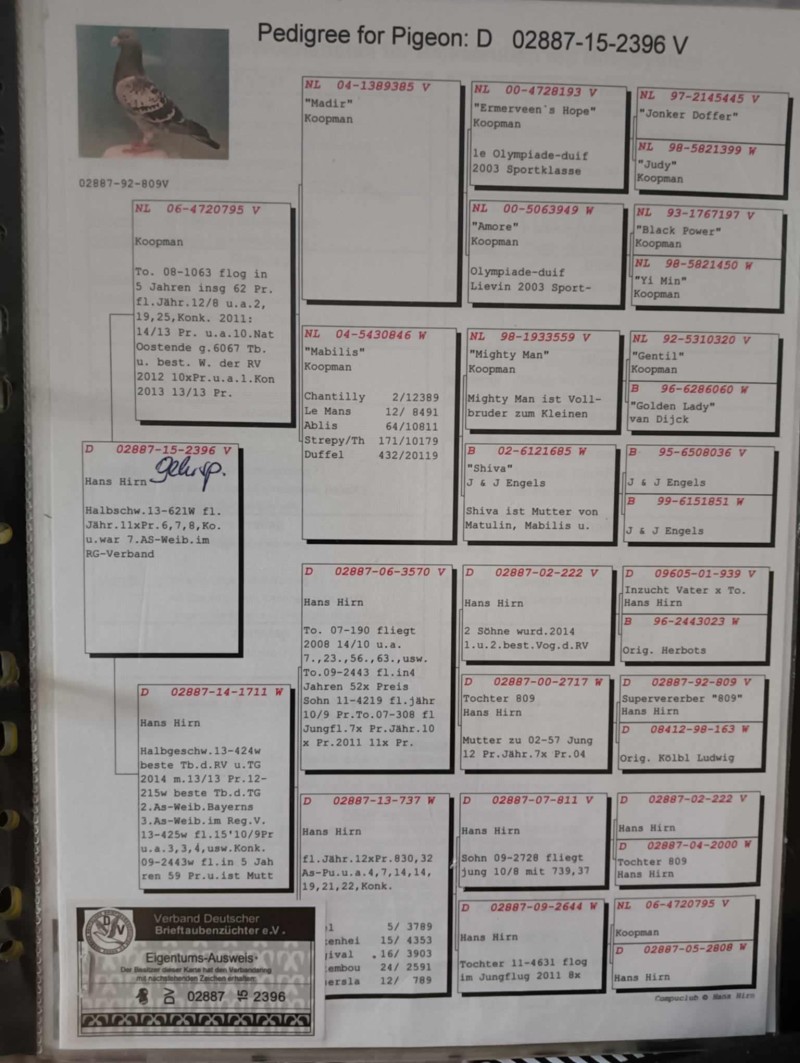 Pedigree for Pigeon: D 02887-15-2396 V
02887-92-809V
NL 06-4720795 V
Koopman
To. 08-1063 flog in
5 Jahren insg 62 Pr.
fl.Jähr.12/8 u.a.2,
19,25,Konk. 2011:
14/13 Pr. u.a.10.Nat
Oostende g.6067 Tb.
u. best. W. der RV
2012 10xPr.u.a.1.Kon
2013 13/13 Pr.
D 02887-15-2396 V
Hans Hirn
Halbschw.13-621W fl.
Jähr.11xPr.6,7,8,Ko.
u.war 7.AS-Weib.im
RG-Verband
D 02887-14-1711 W
Hans Hirn
Halbgeschw.13-424w
beste Tb.d.RV u.TG
2014 m.13/13 Pr.12-
215w beste Tb.d.TG
2.As-Weib.Bayerns
3.As-Weib.im Reg.V.
13-425w fl.15'10/9Pr
u.a.3,3,4,usw.Konk.
09-2443w fl.in 5 Jah
ren 59 Pr.u.ist Mutt
NL 04-1389385 V
"Madir"
Koopman
NL 04-5430846 W
"Mabilis"
Koopman
Chantilly 2/12389
Le Mans 12/ 8491
Ablis 64/10811
Strepy/Th 171/10179
Duffel 432/20119
D 02887-06-3570 V
Hans Hirn
To. 07-190 fliegt
2008 14/10 u.a.
7.,23.,56.,63.,usw.
To.09-2443 fl.in4
Jahren 52x Preis
Sohn 11-4219 fl.jähr
10/9 Pr.To.07-308 fl
Jungfl.7x Pr.Jähr.10
x Pr.2011 11x Pr.
D 02887-13-737 W
Hans Hirn
fl.Jähr.12xPr.830,32
As-Pu.u.a.4,7,14,14,
19,21,22,Konk.
l 5/ 3789
enhei 15/ 4353
ival .16/ 3903
embou 24/ 2591
ersla 12/ 789
NL 00-4728193 V
"Ermerveen`s Hope"
Koopman
1e Olympiade-duif
2003 Sportklasse
NL 00-5063949 W
"Amore"
Koopman
Olympiade-duif
Lievin 2003 Sport-
NL 98-1933559 V
"Mighty Man"
Koopman
Mighty Man ist Voll-
bruder zum Kleinen
B 02-6121685 W
"Shiva"
J & J Engels
Shiva ist Mutter von
Matulin, Mabilis u.
D 02887-02-222 V
Hans Hirn
2 Söhne wurd.2014
1.u.2.best.Vog.d.RV
D 02887-00-2717 W
Tochter 809
Hans Hirn
Mutter zu 02-57 Jung
12 Pr.Jähr.7x Pr.04
D 02887-07-811 V
Hans Hirn
Sohn 09-2728 fliegt
jung 10/8 mit 739,37
D 02887-09-2644 W
Hans Hirn
Tochter 11-4631 flog
im Jungflug 2011 8x
NL 97-2145445 V
"Jonker Doffer"
NL 98-5821399 W
"Judy"
Koopman
NL 93-1767197 V
"Black Power"
Koopman
NL 98-5821450 W
"Yi Min"
Koopman
NL 92-5310320 V
"Gentil"
Koopman
B 96-6286060 W
"Golden Lady"
van Dijck
B 95-6508036 V
J & J Engels
B 99-6151851 W
J & J Engels
D 09605-01-939 V
Inzucht Vater x To.
Hans Hirn
B 96-2443023 W
Orig. Herbots
D 02887-92-809 V
Supervererber "809"
Hans Hirn
D 08412-98-163 W
Orig. Kölbl Ludwig
D 02887-02-222 V
Hans Hirn
D 02887-04-2000 W
Tochter 809
Hans Hirn
NL 06-4720795 V
Koopman
D 02887-05-2808 W
Hans Hirn
Compuclub © Hans Hirn
Verband Deutscher
Brieftaubenzüchter e.V.
Eigentums-Ausweis
Der Besitzer dieser Karte hat den Verbandsring
mit nachstehenden Zeichen erhalten:
DV 02887 15 2396